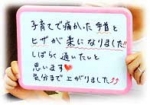 子育てで痛かった手首と
ヒザが楽になりました!!
しばらく通いたいと
思います♥
気分まで上がりました!!